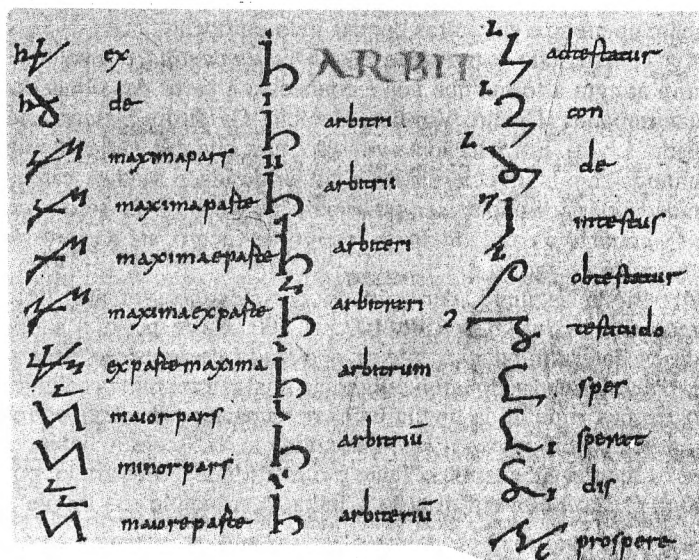 ex
de
maxima pars
maxima parte
maximaeparte
maximaexparte
exparte maxima
maior pars
minor pars
maioreparte
ARBIT
arbitri
arbitrii
arbiteri
arbitreri
arbitrum
arbitriū
arbiteriū
adtestatur
con
de
intestus
obtestatur
sper
sperat
dis
prospere